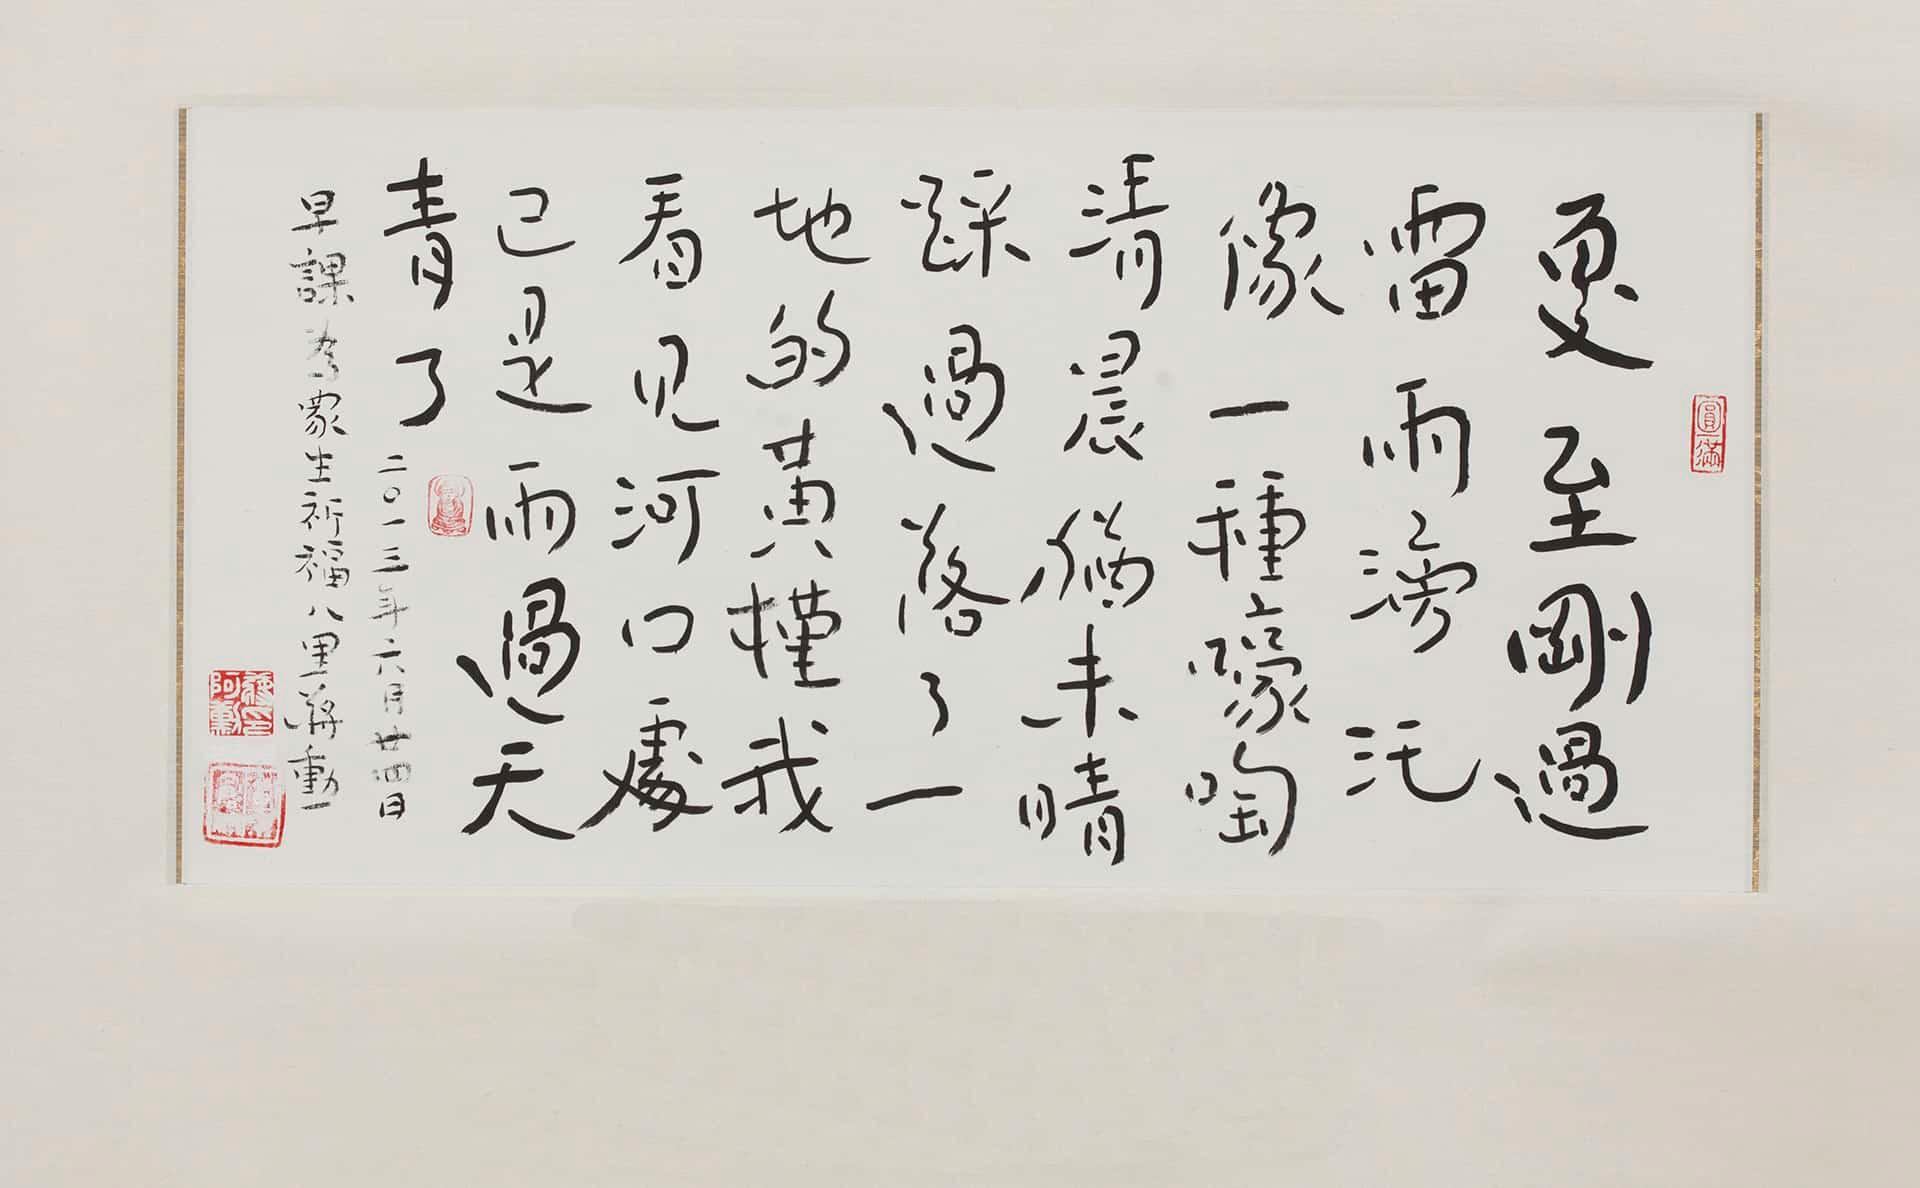 圓滿
夏至剛過
雷雨滂沱
像一種嚎啕
清晨猶未晴
踩過落了一
地的黃槿我
看見河口處
已是雨過天
青了
二〇一三年六月廿四日
早課為眾生祈福八里蔣勳